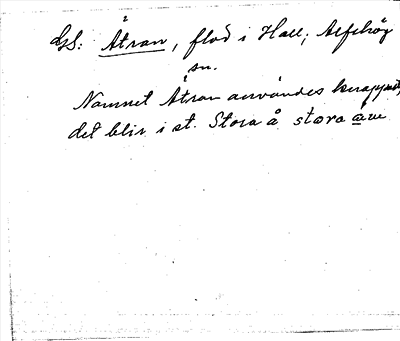 GS: Ätran, flod i Hall; Alfshög
sn.
Namnet Ätran användes knappast,
det blir i st. Stora å stora åve